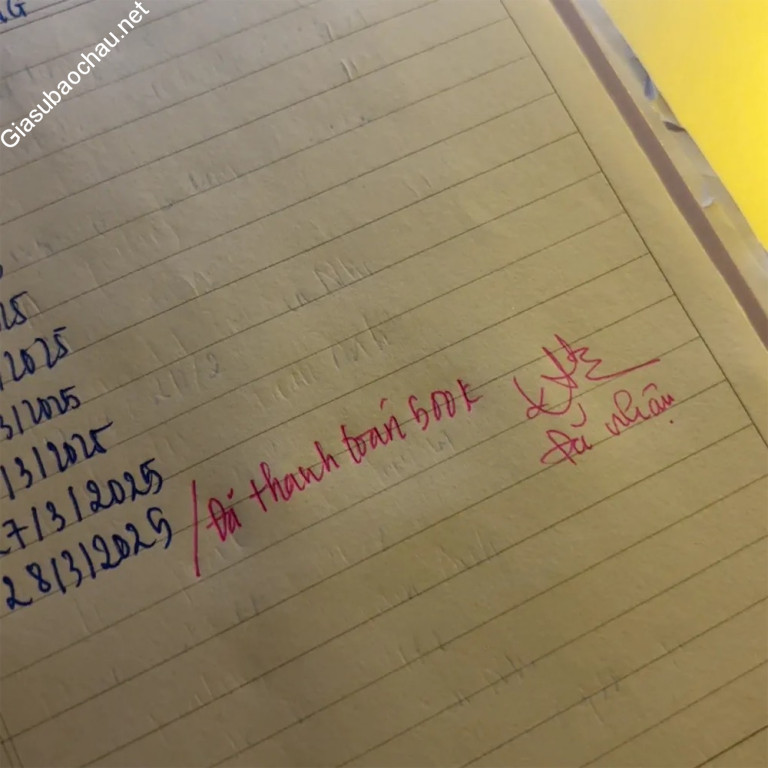 Giasubaochau.net
G
25
2025
3/2025
/3/2025
7/3/2025
28/3/2025 / Đã thanh toán 600k
Đã nhận